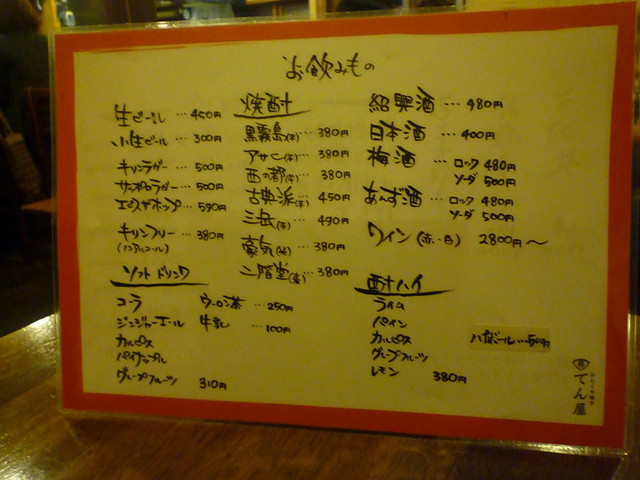 お飲みもの
生ビール … 450円
小生ビール … 300円
キリンラガー … 500円
サッポロラガー … 500円
エビスザホップ … 590円
キリンフリー … 380円
(ノンアルコール)
ソフトドリンク
コーラ
ジンジャーエール
カルピス
パイナップル
グレープフルーツ 310円
ウーロン茶 … 250円
牛乳 … 100円
焼酎
黒霧島(芋) … 380円
アサヒ(芋) … 380円
西の都(芋) … 380円
古典派(芋) … 450円
三岳(芋) … 490円
豪気(米) … 380円
二階堂(麦) … 380円
紹興酒 … 480円
日本酒 … 400円
梅酒 … ロック 480円
ソーダ 500円
あんず酒 … ロック 480円
ソーダ 500円
ワイン (赤・白) 2800円〜
酎ハイ
ライム
パイン
カルピス
グレープフルーツ
レモン 380円
ハイボール
てん屋